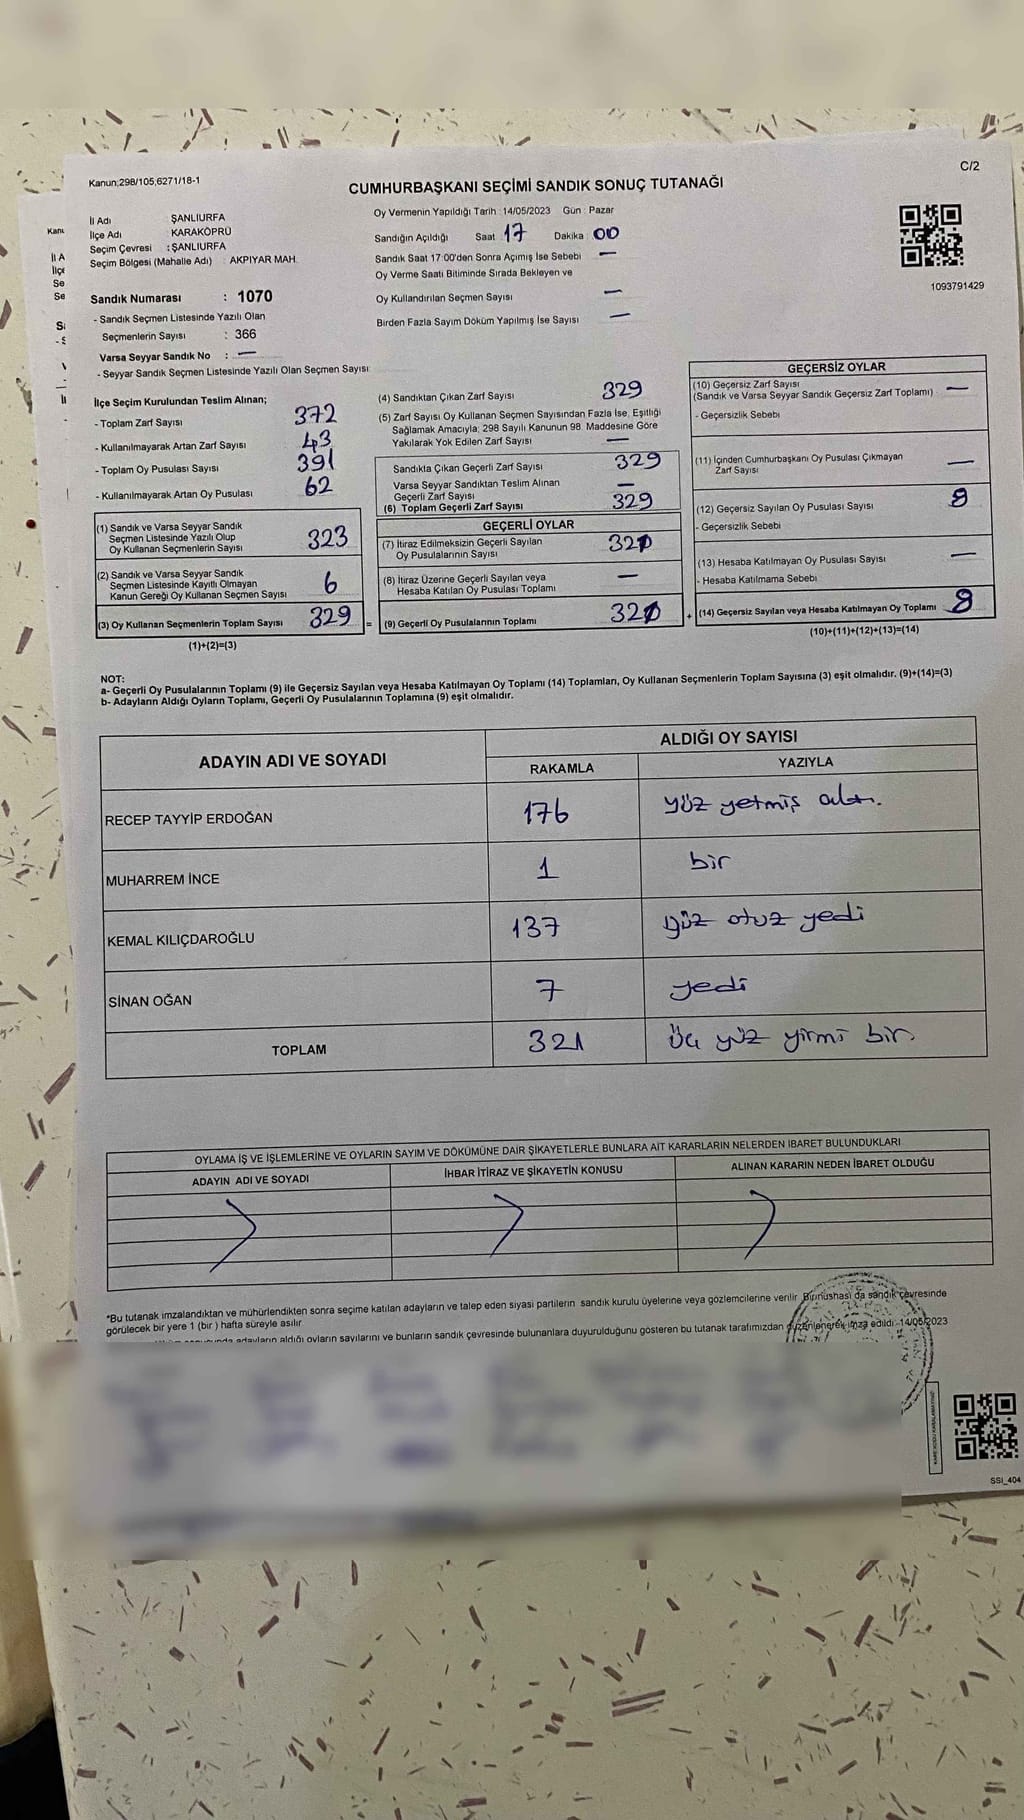 C/2
Kanun;298/105,6271/18-1
CUMHURBAŞKANI SEÇİMİ SANDIK SONUÇ TUTANAĞI
İl Adı ŞANLIURFA
İlçe Adı KARAKÖPRÜ
Seçim Çevresi : ŞANLIURFA
Seçim Bölgesi (Mahalle Adı) : AKPIYAR MAH.
Sandık Numarası : 1070
- Sandık Seçmen Listesinde Yazılı Olan
Seçmenlerin Sayısı : 366
Varsa Seyyar Sandık No : —
- Seyyar Sandık Seçmen Listesinde Yazılı Olan Seçmen Sayısı:
Oy Vermenin Yapıldığı Tarih : 14/05/2023 Gün : Pazar
Sandığın Açıldığı Saat 17 Dakika : 00
Sandık Saat 17:00'den Sonra Açımış İse Sebebi —
Oy Verme Saati Bitiminde Sırada Bekleyen ve
Oy Kullandırılan Seçmen Sayısı —
Birden Fazla Sayım Döküm Yapılmış İse Sayısı —
1093791429
İlçe Seçim Kurulundan Teslim Alınan;
- Toplam Zarf Sayısı 372
- Kullanılmayarak Artan Zarf Sayısı 43
- Toplam Oy Pusulası Sayısı 391
- Kullanılmayarak Artan Oy Pusulası 62
(1) Sandık ve Varsa Seyyar Sandık
Seçmen Listesinde Yazılı Olup
Oy Kullanan Seçmenlerin Sayısı 323
(2) Sandık ve Varsa Seyyar Sandık
Seçmen Listesinde Kayıtlı Olmayan
Kanun Gereği Oy Kullanan Seçmen Sayısı 6
(3) Oy Kullanan Seçmenlerin Toplam Sayısı 329 =
(1)+(2)=(3)
(4) Sandıktan Çıkan Zarf Sayısı 329
(5) Zarf Sayısı Oy Kullanan Seçmen Sayısından Fazla İse, Eşitliği
Sağlamak Amacıyla; 298 Sayılı Kanunun 98. Maddesine Göre
Yakılarak Yok Edilen Zarf Sayısı —
Sandıkta Çıkan Geçerli Zarf Sayısı 329
Varsa Seyyar Sandıktan Teslim Alınan
Geçerli Zarf Sayısı —
(6) Toplam Geçerli Zarf Sayısı 329
GEÇERLİ OYLAR
(7) İtiraz Edilmeksizin Geçerli Sayılan
Oy Pusulalarının Sayısı 321
(8) İtiraz Üzerine Geçerli Sayılan veya
Hesaba Katılan Oy Pusulası Toplamı —
(9) Geçerli Oy Pusulalarının Toplamı 321 +
GEÇERSİZ OYLAR
(10) Geçersiz Zarf Sayısı
(Sandık ve Varsa Seyyar Sandık Geçersiz Zarf Toplamı) —
- Geçersizlik Sebebi
(11) İçinden Cumhurbaşkanı Oy Pusulası Çıkmayan
Zarf Sayısı —
(12) Geçersiz Sayılan Oy Pusulası Sayısı 8
- Geçersizlik Sebebi
(13) Hesaba Katılmayan Oy Pusulası Sayısı —
- Hesaba Katılmama Sebebi
(14) Geçersiz Sayılan veya Hesaba Katılmayan Oy Toplamı 8
(10)+(11)+(12)+(13)=(14)
NOT:
a- Geçerli Oy Pusulalarının Toplamı (9) ile Geçersiz Sayılan veya Hesaba Katılmayan Oy Toplamı (14) Toplamları, Oy Kullanan Seçmenlerin Toplam Sayısına (3) eşit olmalıdır. (9)+(14)=(3)
b- Adayların Aldığı Oyların Toplamı, Geçerli Oy Pusulalarının Toplamına (9) eşit olmalıdır.
ADAYIN ADI VE SOYADI ALDIĞI OY SAYISI
RAKAMLA YAZIYLA
RECEP TAYYİP ERDOĞAN 176 yüz yetmiş altı.
MUHARREM İNCE 1 bir
KEMAL KILIÇDAROĞLU 137 yüz otuz yedi
SİNAN OĞAN 7 yedi
TOPLAM 321 üç yüz yirmi bir
OYLAMA İŞ VE İŞLEMLERİNE VE OYLARIN SAYIM VE DÖKÜMÜNE DAİR ŞİKAYETLERLE BUNLARA AİT KARARLARIN NELERDEN İBARET BULUNDUKLARI
ADAYIN ADI VE SOYADI İHBAR İTİRAZ VE ŞİKAYETİN KONUSU ALINAN KARARIN NEDEN İBARET OLDUĞU
*Bu tutanak imzalandıktan ve mühürlendikten sonra seçime katılan adayların ve talep eden siyasi partilerin sandık kurulu üyelerine veya gözlemcilerine verilir. Bir nüshası da sandık çevresinde
görülecek bir yere 1 (bir ) hafta süreyle asılır.
adayların aldığı oyların sayılarını ve bunların sandık çevresinde bulunanlara duyurulduğunu gösteren bu tutanak tarafımızdan düzenlenerek imza edildi. 14/05/2023
SSI_404